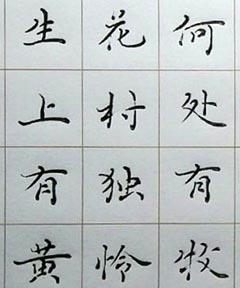 何处有牧
花村独怜
生上有黄